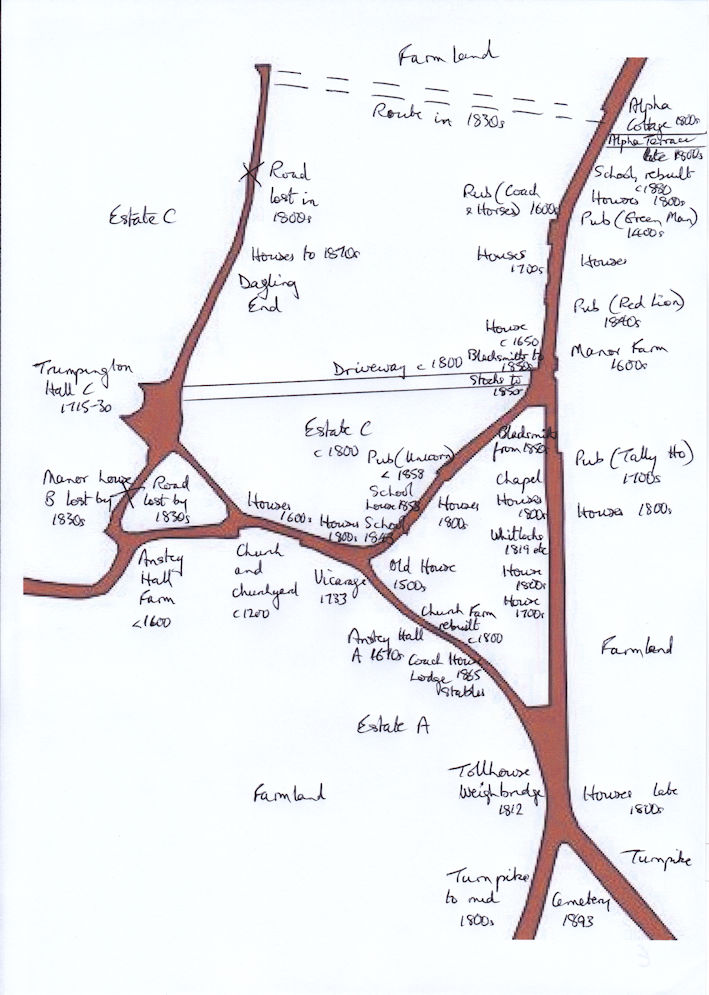 Farmland
Route in 1830s
Alpha
Cottage 1800s
Alpha Terrace
late 1800s
School, rebuilt
c1880
Houses 1800s
Pub (Green Man)
1400s
Houses
Pub (Red Lion)
1840s
Manor Farm
1600s
Pub (Tally Ho)
1700s
Houses 1800s
Farmland
Houses late
1800s
Turnpike
Cemetery
1893
Turnpike
to mid
1800s
Tollhouse
Weighbridge
1812
Road
lost in
1800s
Estate C
Houses to 1870s
Dagling
End
Pub (Coach
& Horses) 1600s
Houses
1700s
House
c 1650
Blacksmiths to
1850s
Stocks to
1850s
Driveway c 1800
Trumpington
Hall C
1715-30
Estate C
c 1800
Pub (Unicorn)
< 1858
School
House 1858
Houses School
1800s
Houses
1800s
Blacksmiths
from 1850s
Chapel
Houses
1800s
Whitlocks
1819 etc
House
1800s
House
1700s
Manor House
B lost by
1830s
Road
lost by
1830s
Houses
1600s
Anstey
Hall
Farm
<1600
Church
and
churchyard
c1200
Vicarage
1733
Old House
1500s
Church Farm
rebuilt
c.1800
Anstey Hall
A
Coach House
Lodge 1865
Stables
Estate A
Farmland